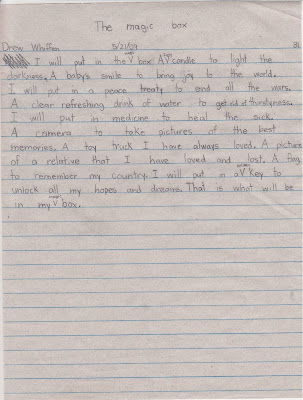 The magic box
Drew Whiffen 5/21/09
I will put in the magic box A candle to light the
darkness. A baby's smile to bring joy to the world.
I will put in a peace treaty to end all the wars.
A clear refreshing drink of water to get rid of thirstyness.
I will put in medicine to heal the sick.
A camera to take pictures of the best
memories. A toy truck I have always loved. A picture
of a relative that I have loved and lost. A flag
to remember my country. I will put in a key to
unlock all my hopes and dreams. That is what will be
in my magic box.